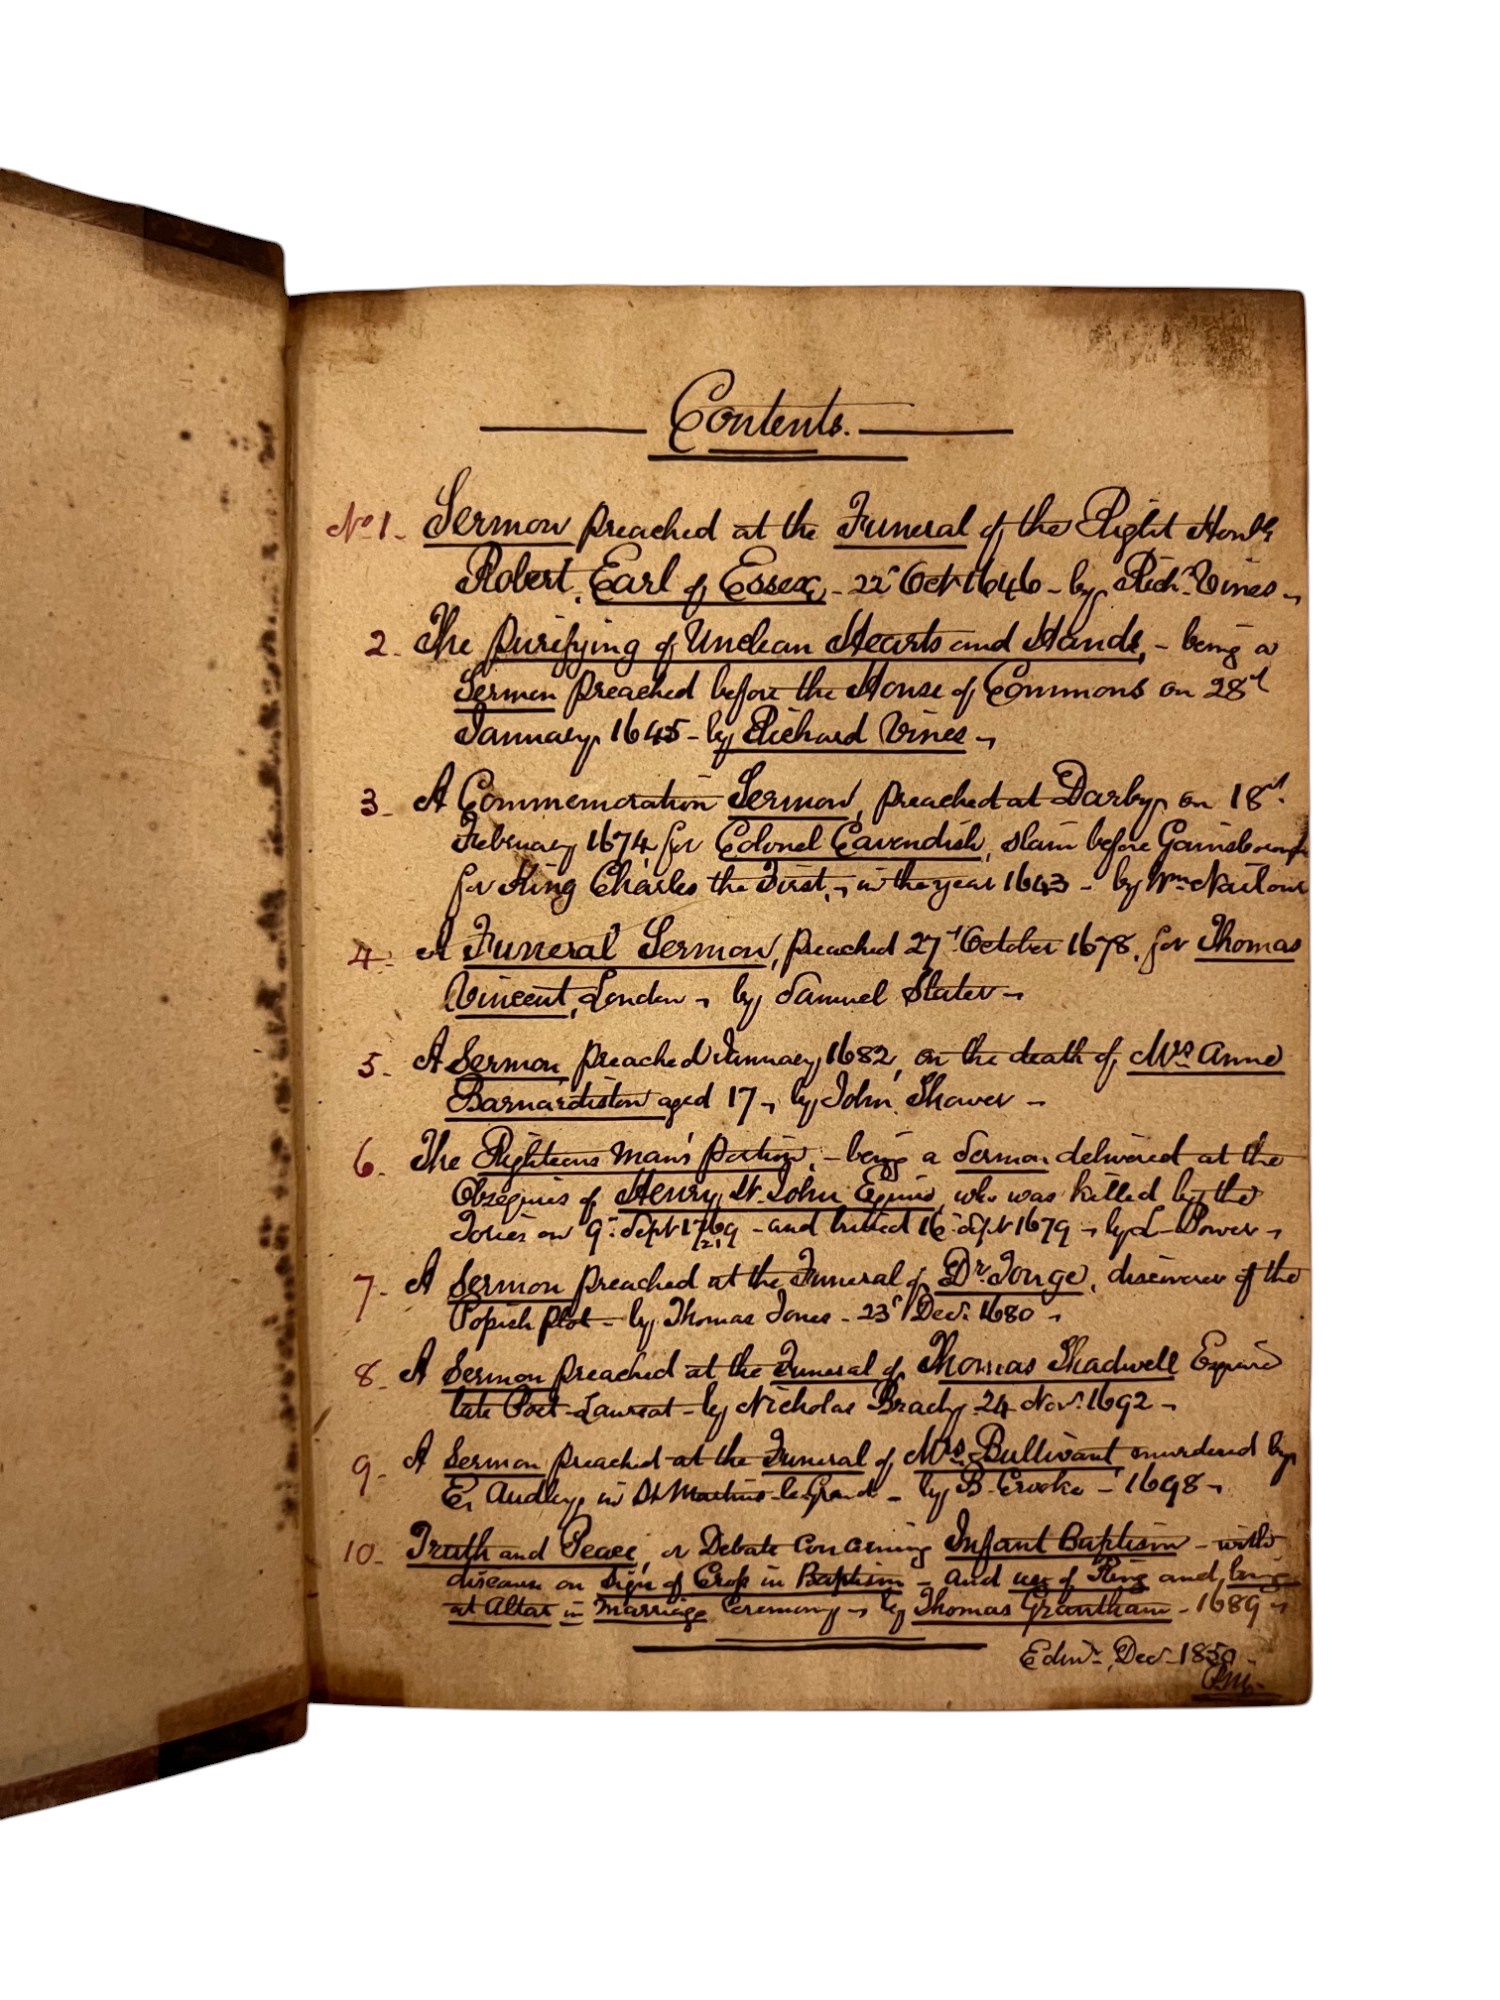 Contents.
No 1. Sermon preached at the Funeral of the Right Honble
Robert, Earl of Essex, - 22d Octr 1646 - by Richd. Vines -
2. The purifying of Unclean Hearts and Hands, - being a
Sermon preached before the House of Commons on 28th
January 1645 - by Richard Vines -
3. A Commemoration Sermon, preached at Darby, on 18th
February 1674, for Colonel Cavendish, slain before Gainsborough
for King Charles the First, - in the year 1643 - by Wm Nailour
4. A Funeral Sermon, preached 27th October 1678, for Thomas
Vincent, London - by Samuel Slater -
5. A Sermon preached January 1682, on the death of Mrs Anne
Barnardiston aged 17 - by John Shower -
6. The Righteous Man's portion, - being a Sermon delivered at the
Obsequies of Henry St. John Esquire, who was killed by the
Tories on 9th Sept - and buried 16 Sept 1679 - by L Power -
7. A Sermon preached at the Funeral of Dr. Tonge, discoverer of the
Popish plot - by Thomas Jones - 23d Decr. 1680 -
8. A Sermon preached at the Funeral of Thomas Shadwell Esquire
late Poet-Laureat - by Nicholas Brady 24 Novr. 1692 -
9. A Sermon preached at the Funeral of Mrs Bullivant, murdered by
E. Audley, in St Martins le Grand - by B. Crooke - 1698 -
10. Truth and Peace, or Debate concerning Infant Baptism - with
discourse on Sign of Cross in Baptism - and use of Ring and
at Altar in Marriage Ceremony - by Thomas Grantham - 1689 -
Edinr. Decr. 1850 -